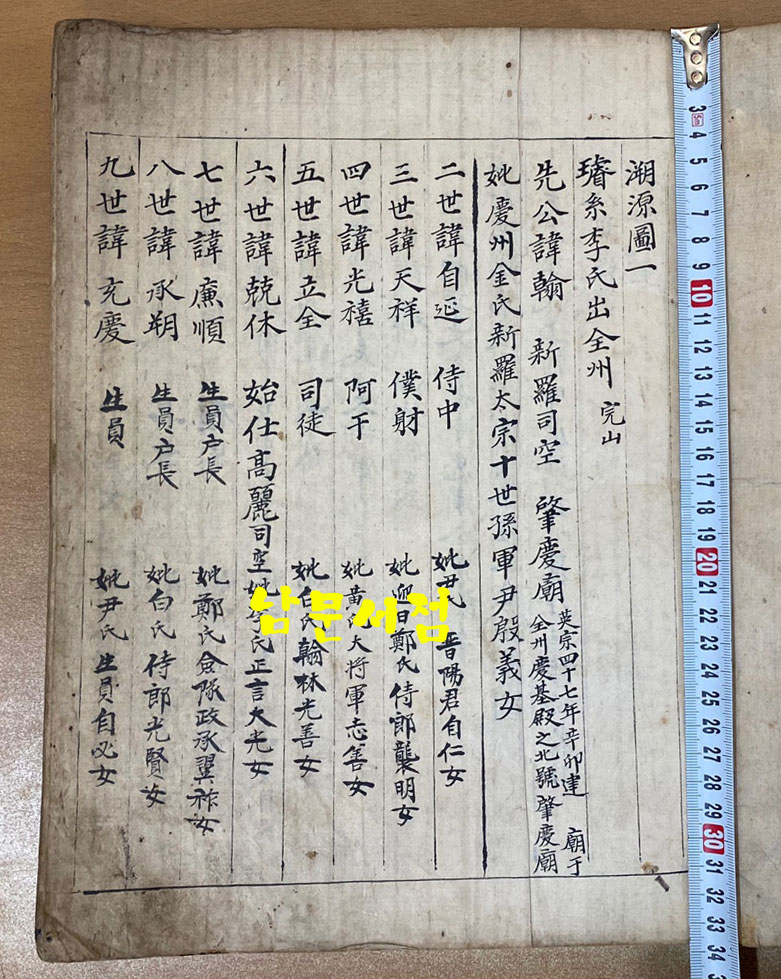 溯源圖一
璿系李氏出全州 完山
先公諱翰 新羅司空 肇慶廟 英宗四十七年辛卯建 廟于
全州慶基殿之北號肇慶廟
妣慶州金氏新羅太宗十世孫軍尹殷義女
二世諱自延 侍中 妣尹氏 晋陽君自仁女
三世諱天祥 僕射 妣迎日鄭氏侍郎襲明女
四世諱光禧 阿干 妣黃氏大將軍志善女
五世諱立全 司徒 妣白氏翰林光善女
六世諱兢休 始仕高麗司空妣李氏正言大光女
七世諱廉順 生員戶長 妣鄭氏僉隊政承翼祚女
八世諱承朔 生員戶長 妣白氏侍郎光賢女
九世諱充慶 生員 妣尹氏生員自必女
남문서점
3 4 5 6 7 8 9 10 11 12 13 14 15 16 17 18 19 20 21 22 23 24 25 26 27 28 29 30 31 32 33 34